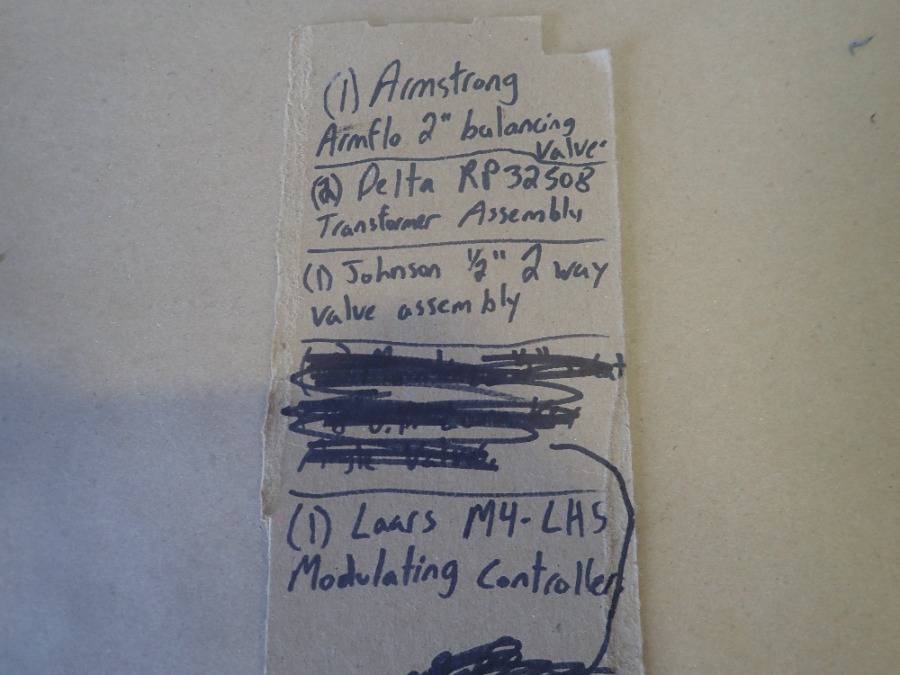 (1) Armstrong
Armflo 2" balancing
valve.
(2) Delta RP32508
Transformer Assembly
(1) Johnson 1/2" 2 way
valve assembly
Angle Valve.
(1) Laars M4-LHS
Modulating Controller